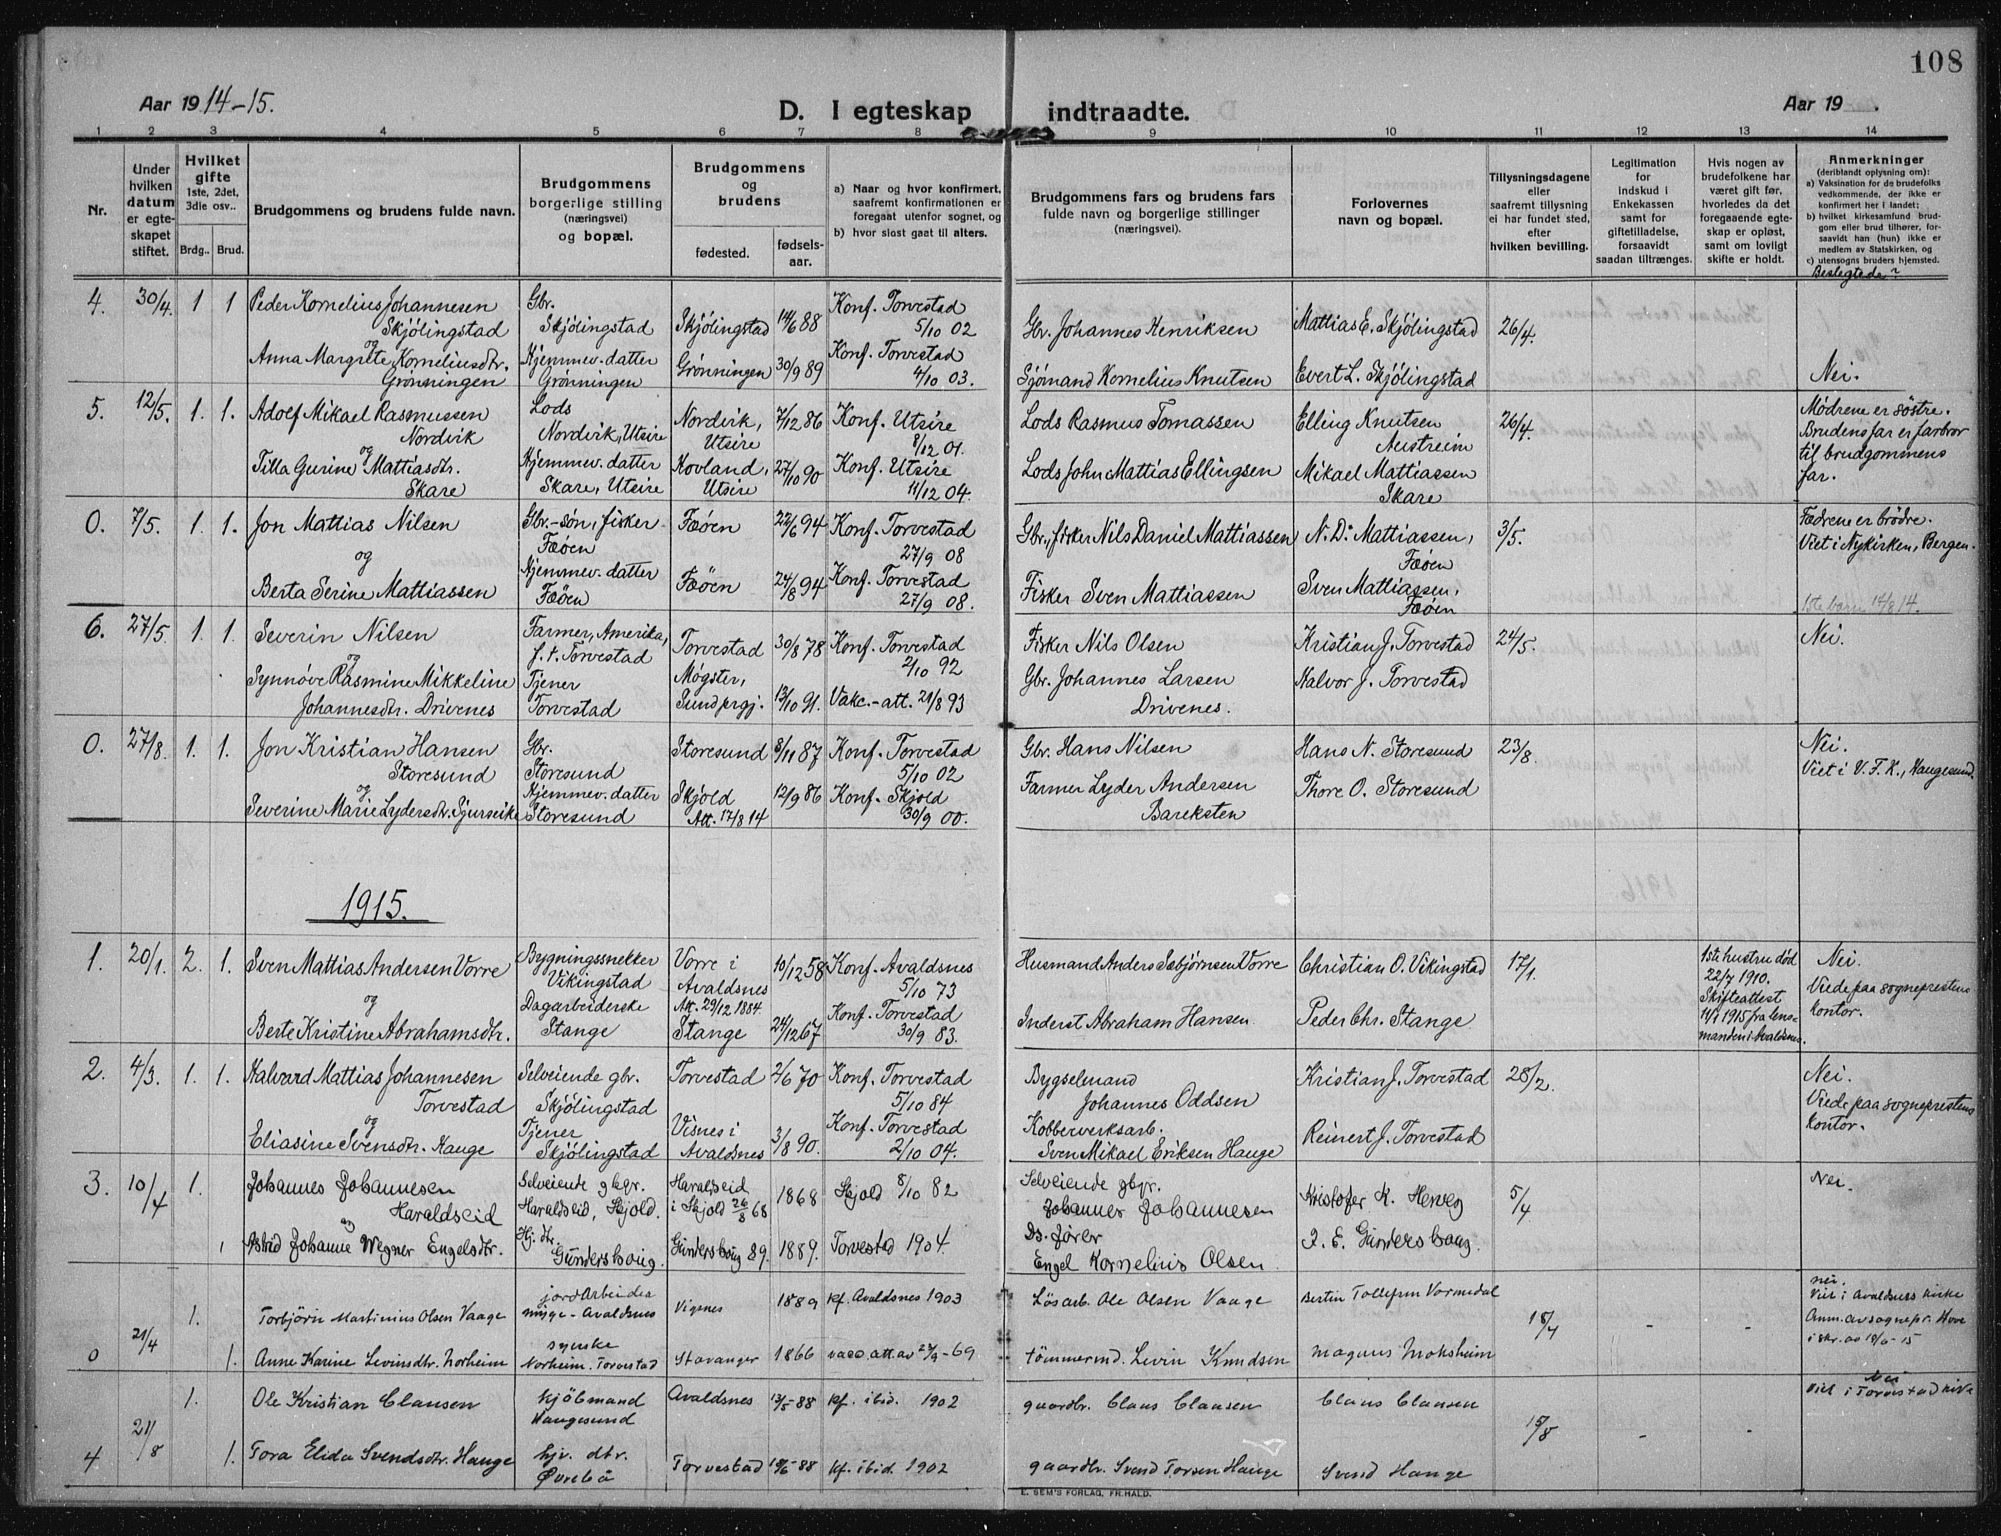 108
Aar 1914-15.
D. I egteskap indtraadte.
Aar 19 .
1 2 3 4 5 6 7 8 9 10 11 12 13 14
Nr.
Under hvilken datum er egteskapet stiftet.
Hvilket gifte 1ste, 2det, 3die osv..
Brdg.. Brud.
Brudgommens og brudens fulde navn.
Brudgommens borgerlige stilling (næringsvei) og bopæl.
Brudgommens og brudens
fødested.
fødselsaar.
a) Naar og hvor konfirmert, saafremt konfirmationen er foregaat utenfor sognet, og
b) hvor slost gaat til alters.
Brudgommens fars og brudens fars fulde navn og borgerlige stillinger (næringsvei).
Forlovernes navn og bopæl.
Tillysningsdagene eller saafremt tillysning ei har fundet sted, efter hvilken bevilling.
Legitimation for indskud i Enkekassen samt for giftetilladelse, forsaavidt saadan tiltrænges.
Hvis nogen av brudefolkene har været gift før, hvorledes da det foregaaende egteskap er opløst, samt om lovligt skifte er holdt.
Anmerkninger (deriblandt oplysning om): a) Vaksination for de brudefolks vedkommende, der ikke er konfirmert her i landet; b) hvilket kirkesamfund brudgom eller brud tilhører, forsaavidt han (hun) ikke er medlem av Statskirken, og c) utensogns bruders hjemsted.
Beslegtede?
4. 30/4. 1 1 Peder Kornelius Johannesen Skjölingstad Gbr. Skjölingstad Skjölingstad 14/6 88 Konf. Torvestad 5/10 02 Gbr. Johannes Henriksen Mattias E. Skjölingstad 26/4.
og
Anna Margitte Korneliusdtr. Grönningen Hjemmev. datter Grönningen Grönningen 30/9 89 Konf. Torvestad 4/10 03. Sjömand Kornelius Knutsen Evert L. Skjölingstad Nei.
5. 12/5. 1. 1. Adolf Mikael Rasmussen Nordvik Lods Nordvik, Utsire Nordvik, Utsire 7/12 86 Konf. Utsire 8/12 01. Lods Rasmus Tomassen Elling Knutsen Austreim 26/4. Mødrene er söstre. Brudens far er farbror til brudgommens far.
og
Tilla Gurine Mattiasdtr. Skare Hjemmev. datter Skare, Utsire Hovland, Utsire 27/10 90 Konf. Utsire 11/12 04. Lods John Mattias Ellingsen Mikael Mattiassen Skare
0. 7/5. 1. 1. Jon Mattias Nilsen Gbr.-sön, fisker Fæöen Fæöen 22/6 94 Konf. Torvestad 27/9 08 Gbr., fisker Nils Daniel Mattiassen N. D. Mattiassen, Fæöen 3/5. Fædrene er brödre. Viet i Nykirken, Bergen.
og
Berta Serine Mattiassen Hjemmev. datter Fæöen Fæöen 24/8 94 Konf. Torvestad 27/9 08. Fisker Sven Mattiassen Sven Mattiassen, Fæöen 1ste barn 14/8 14.
6. 27/5. 1. 1. Severin Nilsen Farmer, Amerika, f. t. Torvestad Torvestad 30/8 78 Konf. Torvestad 2/10 92 Fisker Nils Olsen Kristian J. Torvestad 24/5. Nei.
og
Synnöve Rasmine Mikkeline Johannesdtr. Drivenes Tjener Torvestad Møgster, Sund prgj. 13/10 91. Vakc.-att. 21/8 93 Gbr. Johannes Larsen Drivenes. Halvor J. Torvestad
0. 27/8. 1. 1. Jon Kristian Hansen Storesund Gbr. Storesund Storesund 8/11 87 Konf. Torvestad 5/10 02 Gbr. Hans Nilsen Hans N. Storesund 23/8. Nei. Viet i V. F. K., Haugesund.
og
Severine Marie Lydersdtr. Sjurseike Hjemmev. datter Storesund Skjold Att. 17/8 14 12/9 86 Konf. Skjold 30/9 00. Farmer Lyder Andersen Bareksten Thore O. Storesund
1915.
1. 20/1. 2. 1. Sven Mattias Andersen Vorre Bygningssnekker Vikingstad Vorre i Avaldsnes Att. 29/12 1884 10/12 58 Konf. Avaldsnes 5/10 73 Husmand Anders Asbjørnsen Vorre Christian O. Vikingstad 17/1. 1ste hustru död 22/7 1910. Skifteattest 11/1 1915 fra lensmanden i Avaldsnes. Nei. Viede paa sogneprestens kontor.
og
Berte Kristine Abrahamsdtr. Dagarbeiderske Stange Stange 24/12 67 Konf. Torvestad 30/9 83. Inderst Abraham Hansen Peder Chr. Stange
2. 4/3. 1. 1. Halvard Mattias Johannesen Torvestad Selveiende gbr. Skjölingstad Torvestad 2/6 70 Konf. Torvestad 5/10 84 Bygselmand Johannes Oddsen Kristian J. Torvestad 28/2. Nei. Viede paa sogneprestens kontor.
og
Eliasine Svensdtr. Hauge Tjener Skjölingstad Visnes i Avaldsnes 3/8 90. Konf. Torvestad 2/10 04. Kobberverksarb. Sven Mikael Eriksen Hauge Reinert J. Torvestad
3. 10/4 1. Johannes Johannesen Haraldseid Selveiende gbgr. Haraldseid, Skjold. Haraldseid i Skjold 26/8 68 1868 Skjold 8/10 82 Selveiende gbgr. Johannes Johannesen Kristofer K. Hervig 5/4 Nei.
og
1 Astrid Johanne Wegner Engelsdtr. Hj. dtr. Gundershaug. Gundershaug 89. 1889. Torvestad 1904. Engel Kornelius Olsen J. E. Gundershaug.
0 21/4 1. Torbjörn Martinius Olsen Vaage jordarbeider myge-Avaldsnes Vigenes 1889 kf. Avaldsnes 1903 Lösarb. Ole Olsen Vaage Bertin Tollefsen Vormedal 18/4 - - nei. Viet i Avaldsnes kirke Anm. av sognepr. Hove
1. Anne Karine Levinsdtr. Norheim syerske Norheim. Torvestad Stavanger 1866 vacc. att. av 2/9-69 tömmermd. Levin Knudsen Magnus Moksheim
4 21/8 1. Ole Kristian Clausen kjöbmand Haugesund Avaldsnes 13/5-88 kf. ibid. 1902 gaardbr. Claus Clausen Claus Clausen 15/8 - - Nei Viet i Torvestad kirke
1. Tora Elida Svendsdtr. Hauge hjv. dtr. Øvrebö Torvestad 19/6-88 kf. ibid. 1902 gaardbr. Svend Torsen Hauge Svend Hauge
E. SEM'S FORLAG, FR.HALD.